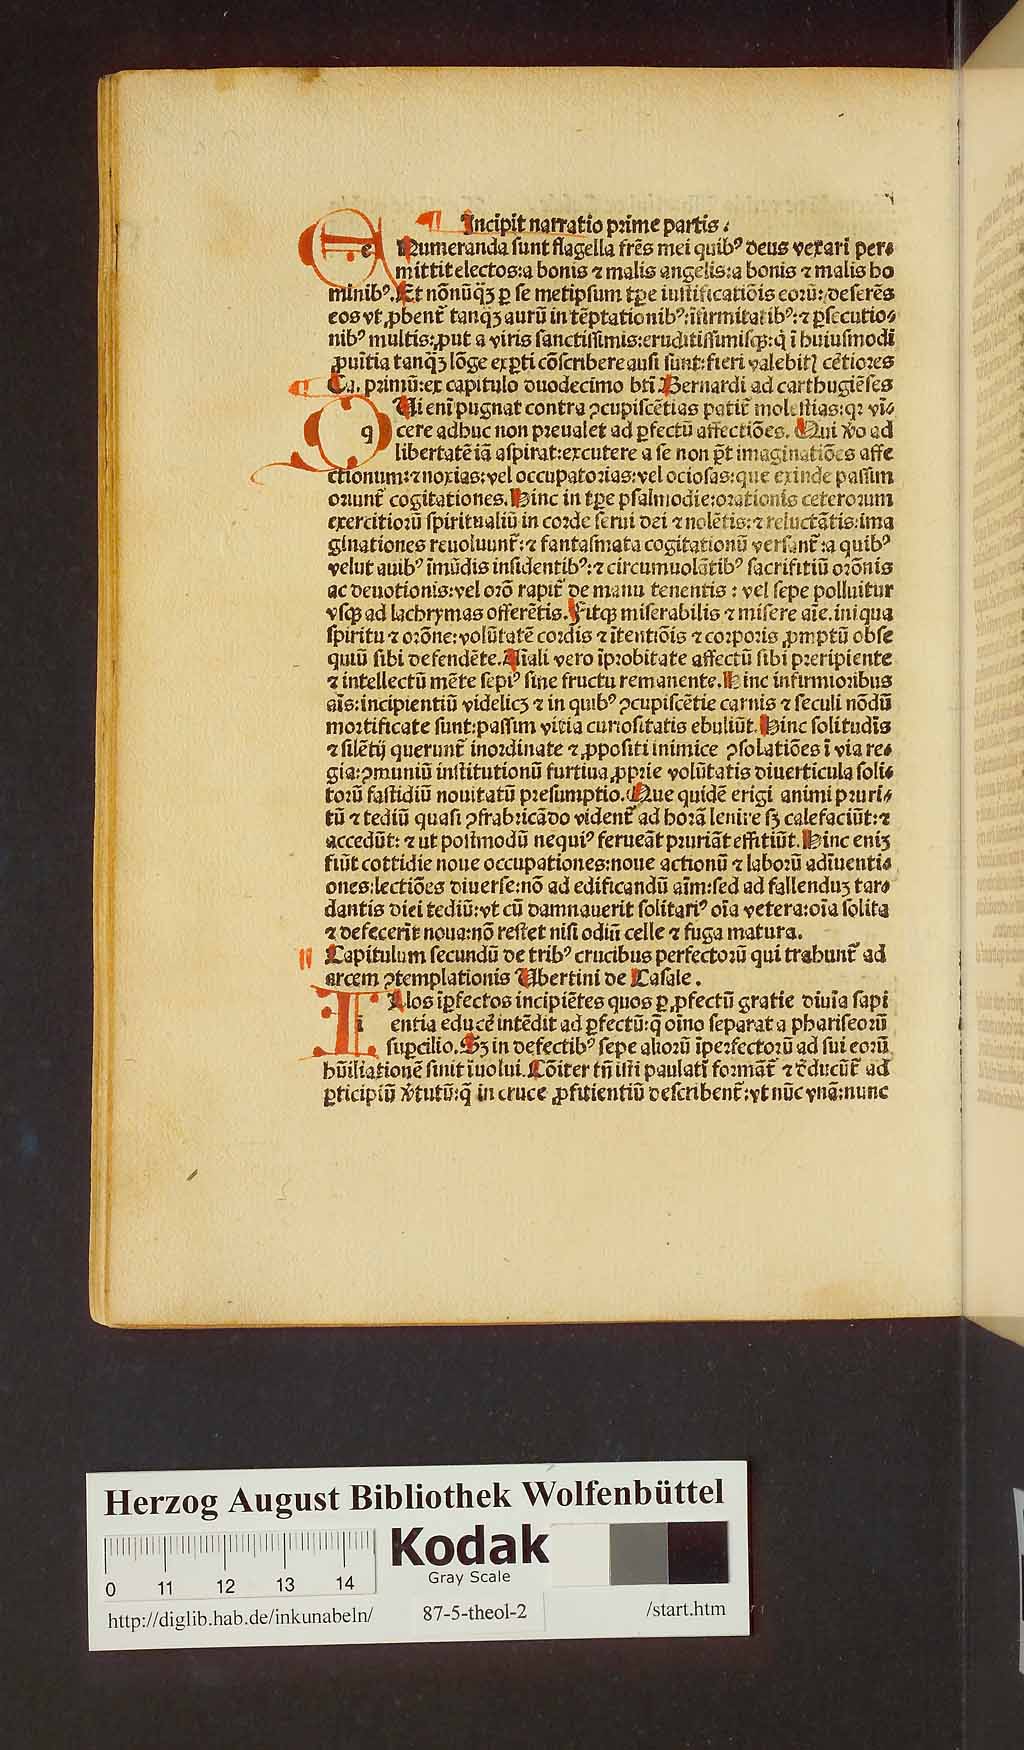 Incipit narratio prime partis.
e Numeranda sunt flagella frēs mei quibꝰ deus vexari per⸗
mittit electos:a bonis ⁊ malis angelis:a bonis ⁊ malis ho
minibꝰ. Et nōnūqꝫ ꝑ se metipsum tꝑe iustificatiōis eorū:deserēs
eos vt ꝓbent᷑ tanqꝫ aurū in tēptationibꝰ:īfirmitatibꝰ:⁊ ꝑsecutio⸗
nibꝰ multis:ꝓut a viris sanctissimis:eruditissimisqꝫ:q̄ ī huiusmodi
ꝓuītia tanqꝫ lōge exꝑti cōscribere ausi sunt:fieri valebitꝭ cētiores
Ca. primū:ex capitulo duodecimo bti Bernardi ad carthugiēses
q Ui enī pugnat contra ꝯcupiscētias patit᷑ molestias:qꝛ vī⸗
cere adhuc non preualet ad ꝑfectū affectiōes. Qui v̓o ad
libertatē iā aspirat:excutere a se non pōt imaginatiōes affe
ctionum:⁊ noxias:vel occupatorias:vel ociosas:que exinde passim
oriunt᷑ cogitationes. Hinc in tꝑe psalmodie:orationis ceterorum
exercitiorū spiritualiū in corde serui dei ⁊ nolētis:⁊ reluctātis:ima
ginationes reuoluunt᷑:⁊ fantasmata cogitationū versant᷑:a quibꝰ
velut auibꝰ īmūdis insidentibꝰ:⁊ circumuolātibꝰ sacrifitiū orōnis
ac deuotionis:vel orō rapit᷑ de manu tenentis : vel sepe polluitur
vsqꝫ ad lachrymas offerētis. Fitqꝫ miserabilis ⁊ misere aīe. iniqua
spiritu ⁊ orōne:volūtatē cordis ⁊ ītentiōis ⁊ corporis ꝓmptū obse
quiū sibi defendēte. Aīali vero īprobitate affectū sibi preripiente
⁊ intellectū mēte sepiꝰ sine fructu remanente. Hinc infirmioribus
aīs:incipientiū videlicꝫ ⁊ in quibꝰ ꝯcupiscētie carnis ⁊ seculi nōdū
mortificate sunt:passim vitia curiositatis ebuliūt. Hinc solitudīs
⁊ silētij querunt᷑ inordinate ⁊ ꝓpositi inimice ꝯsolatiōes ī via re⸗
gia:ꝯmuniū institutionū furtiua ꝓprie volūtatis diuerticula soli⸗
torū fastidiū nouitatū presumptio. Que quidē erigi animi pruri⸗
tū ⁊ tediū quasi ꝯfrabricādo vident᷑ ad horā lenire sꝫ calefaciūt:⁊
accedūt: ⁊ ut postmodū nequiꝰ ferueāt pruriāt effitiūt. Hinc enīꝫ
fiūt cottidie noue occupationes:noue actionū ⁊ laborū adīuenti⸗
ones:lectiōes diuerse:nō ad edificandū aīm:sed ad fallenduꝫ tar⸗
dantis diei tediū:vt cū damnauerit solitariꝰ oīa vetera:oīa solita
⁊ defecerīt noua:nō restet nisi odiū celle ⁊ fuga matura.
Capitulum secundū de tribꝰ crucibus perfectorū qui trahunt᷑ ad
arcem ꝯtemplationis Ubertini de Casale.
i Llos īꝑfectos incipiētes quos ꝑ ꝓfectū gratie diuīa sapi
entia educē intēdit ad ꝑfectū:q̄ oīno separat a phariseorū
suꝑcilio. Sꝫ in defectibꝰ sepe aliorū īperfectorū ad sui eorū
hūiliationē sinit īuolui. Cōiter tn̄ isti paulatī formāt᷑ ⁊ cōducūt᷑ ad
ꝑticipiū v̓tutū:q̄ in cruce ꝓfitientiū describent᷑:vt nūc vnā:nunc
Herzog August Bibliothek Wolfenbüttel
Kodak
Gray Scale
0 11 12 13 14
http://diglib.hab.de/inkunabeln/
87-5-theol-2
/start.htm